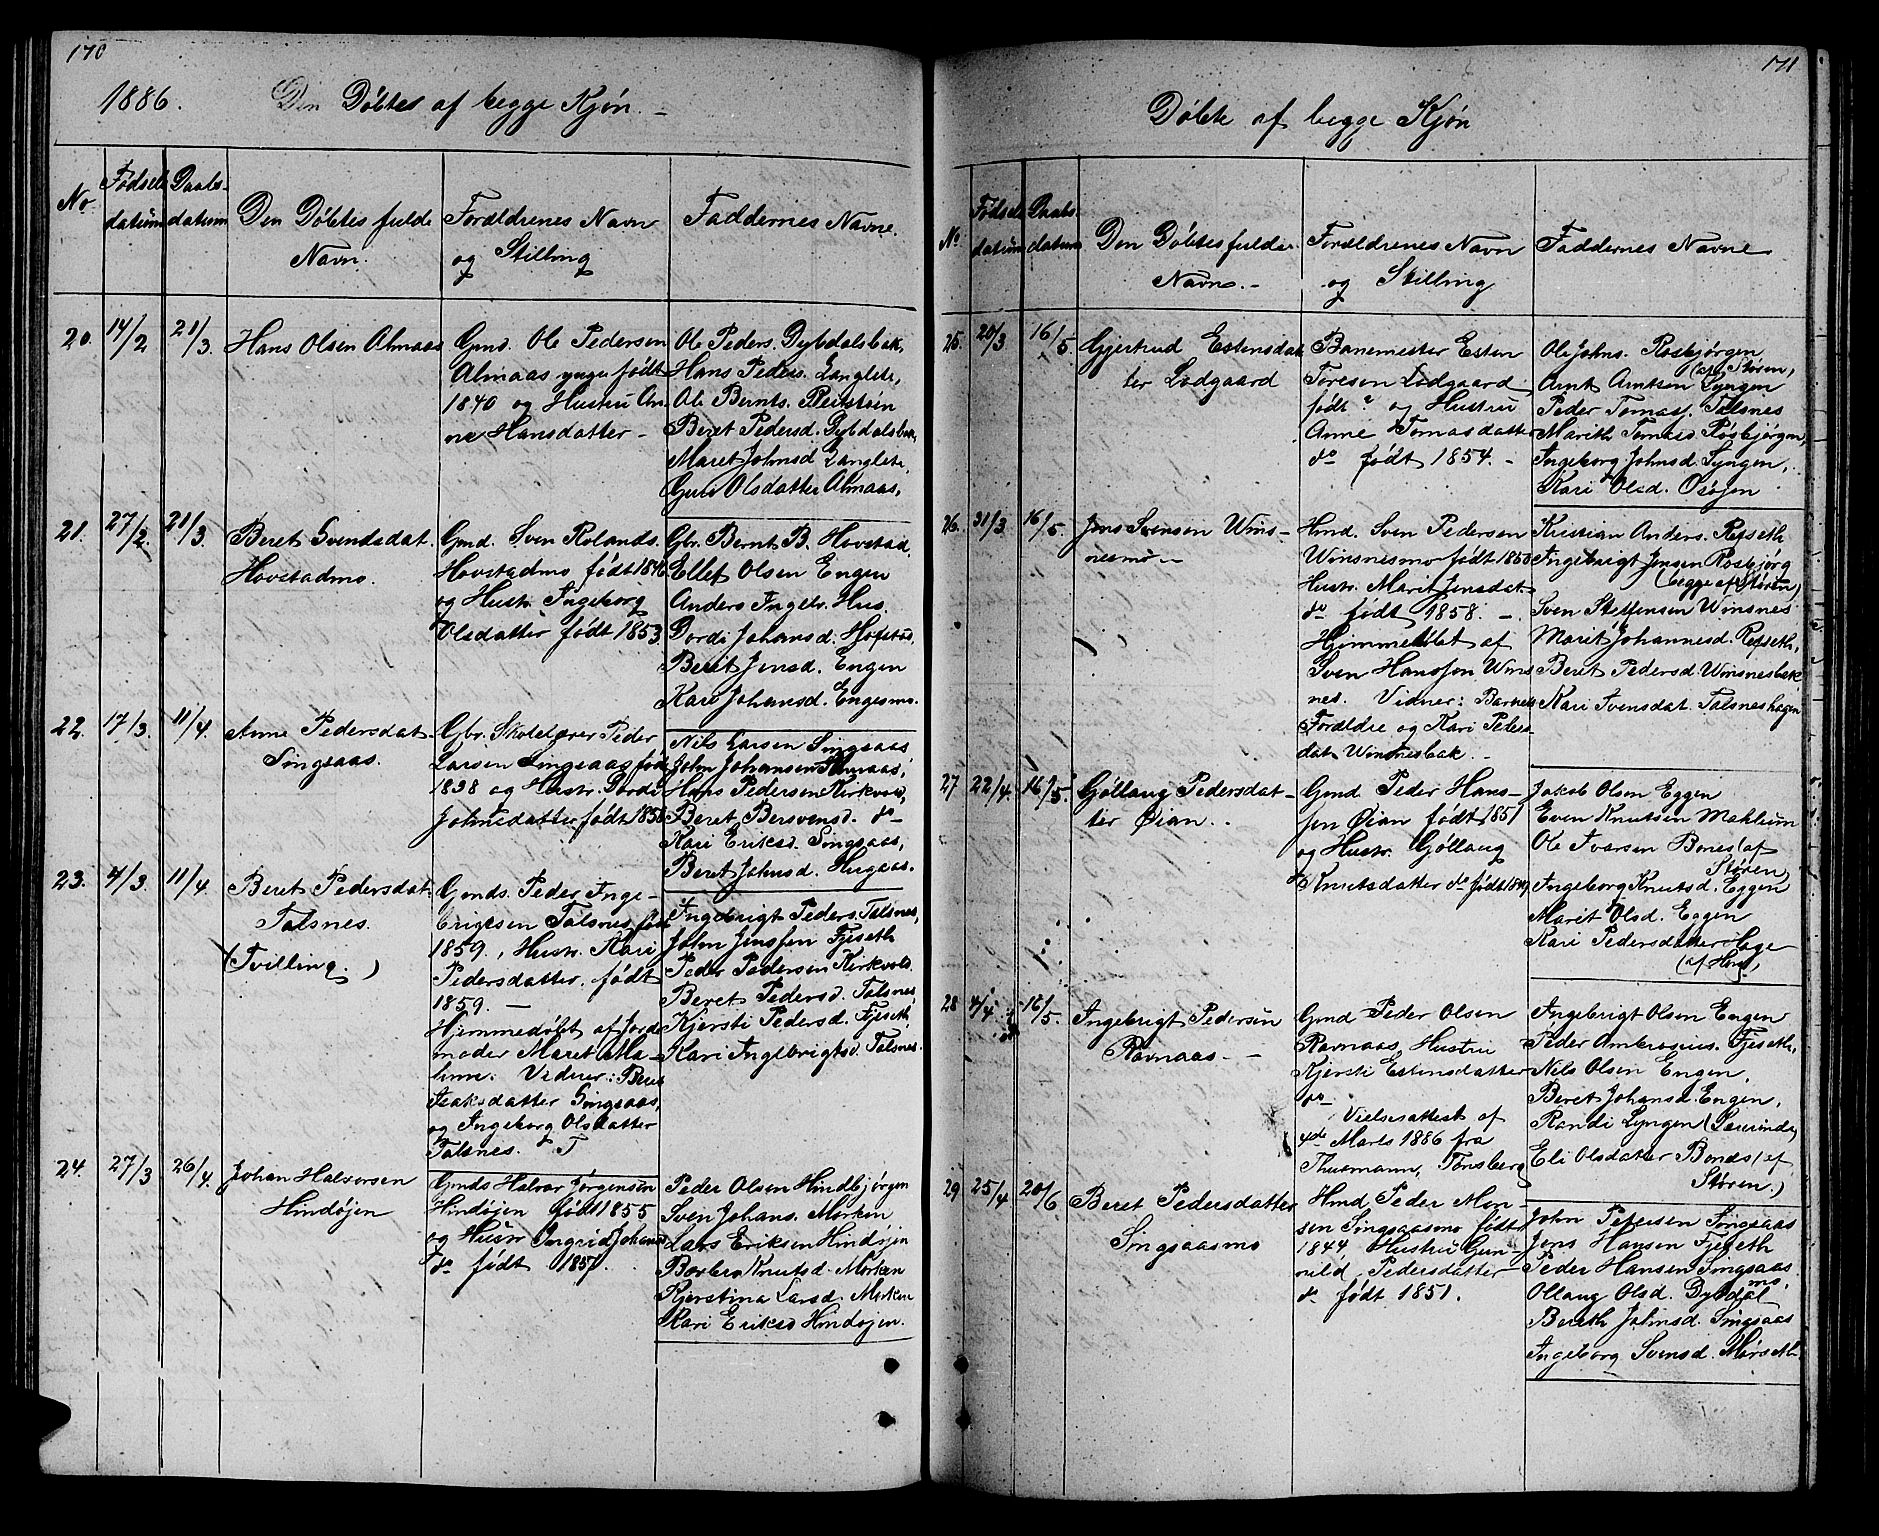 170
1886. Den Döbtes af begge Kjön. –
No.
Födsels
datum
Daabs-
datum
Den Döbtes fulde
Navn.
Forældrenes Navn
og Stilling
Faddernes Navne.
20. 14/2 21/3. Hans Olsen Almaas
Gmd. Ole Pedersen
Almaas yngre født
1840 og Hustru An-
ne Hansdatter –
Ole Peders. Dybdalsbak,
Hans Peders. Langlete,
Ole Bernts.
Beret Pedersd. Dybdalsbak,
Maret Johnsd Langlete,
Guru Olsdatter Almaas,
21. 27/2 21/3. Beret Svendsdat.
Hovstadmo.
Gmd. Sven Rolands.
Hovstadmo født 1846
og Hustr. Ingeborg
Olsdatter født 1853
Gbr. Bernt B. Hovstad,
Ellef Olsen Engen
Anders Ingebr. Hus.
Dordi Johansd. Hofstad,
Beret Jensd. Engen
Kari Johansd. Engesmo.
22. 17/3 11/4. Anne Pedersdat-
Singsaas.
Gbr. Skolelærer Peder
Larsen Singsaas født
1838 og Hustr. Dordi
Johnsdatter født 1858
Nils Larsen Singsaas
John Johansen Almaas,
Hans Pedersen Kirkvold,
Beret Bersvensd. do –
Kari Eriksd. Singsaas,
Beret Johnsd. Hugaas.
23. 4/3 11/4. Beret Pedersdat.
Talsnes.
(Tvilling)
Gmds. Peder Inge-
brigtsen Talsnes, født
1859., Hustr. Kari
Pedersdatter. født
1859. –
Hjemmedøbt af Jorde-
moder Maret Ma-
lum. Vidner: Beret
Isaksdatter Singsaas,
og Ingeborg Olsdatter
Talsnes.
Ingebrigt Peders. Talsnes,
John Jensen Fjeseth
Peder Pedersen Kirkvold.
Beret Pedersd. Talsnes,
Kjersti Pedersd. Fjeseth,
Kari Ingebrigtsd. Talsnes.
24. 27/3 26/4. Johan Halvorsen
Hindöjen
Gmds Halvor Jørgensen
Hindöjen født 1855
og Hustr Ingrid Johansd
do født 1851.
Peder Olsen Hindbjørgen
Sven Johans. Morken
Lars Eriksen Hindöjen
Barbro Knutsd. Morken
Kjerstina Larsd. Morken
Kari Eriksd Hindöjen.
171
Döbte af begge Kjön
No
Födsels
datum
Daabs.
datum
Den Döbtes fulde
Navn. –
Forældrenes Navn
og Stilling
Faddernes Navne
25. 20/3 16/5. Gjertrud Estensdat
ter Lodgaard
Banemester Esten
Toresen Lodgaard
født ? og Hustru
Anne Tomasdatter
do født 1854. –
Ole Johns. Rosbjørgen
(af Støren,
Arnt Arntsen Lyngen
Peder Tomass. Talsnes
Marith Tomasd. Rosbjørgen,
Ingeborg Johnsd. Lyngen,
Kari Olsd. Osøjen
26. 31/3 16/5. Jens Svensen Wins-
nesmo –
Hmd. Sven Pedersen
Winsnesmo født 1853
Hustr. Marit Jensdat.
do født 1858. –
Hjemmedøbt af
Sven Hanssen Wins
nes. Vidner: Barnets
Forældre og Kari Peders
dat. Winsnesbak. –
Kristian Anders. Refseth
Ingebrigt Jensen Rosbjørg
(begge af Støren)
Sven Steffensen Winsnes
Marit Johannesd. Refseth,
Beret Pedersd. Winsnesbak,
Kari Svensdat. Talsneshagen
27 22/4. 16/5. Göllaug Pedersdat-
ter Øian.
Gmd Peder Hans-
sen Øian født 1851
og Hustr. Göllaug
Knutsdatter do født
Jakob Olsen Eggen
Even Knutsen Mehlum
Ole Ivarsen Bones (af
Støren)
Ingeborg Knutsd. Eggen
Marit Olsd. Eggen
Kari Pedersdatter Hage
(af Horg)
28 4/4 16/5. Ingebrigt Pedersen
Ravnaas –
Gmd Peder Olsen
Ravnaas, Hustru
Kjersti Estensdatter
do –
Vielsesattest af
4de Marts 1886 fra
Thuemann, Tønsberg
Ingebrigt Olsen Engen
Peder Ambrosius. Fjeseth,
Nils Olsen Engen,
Beret Johansd. Engen,
Randi Lyngen
Eli Olsdatter Bones (af
Støren.)
29 25/4 20/6 Beret Pedersdatter
Singsaasmo
Hmd. Peder Mon-
sen Singsaasmo født
1844, Hustru Gun-
nild Pedersdatter
do født 1851.
John Petersen Singsaas
Jens Hansen Fjeseth
Peder Hansen Singsaas
mo,
Ollaug Olsd. Dybdal
Bereth Johnsd. Singsaas
Ingeborg Svensd. Morseth.